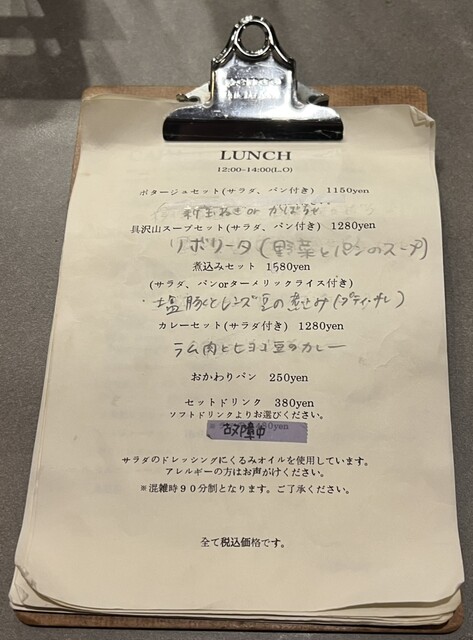 LUNCH
12:00-14:00(L.O)
ポタージュセット(サラダ、パン付き) 1150yen
新玉ねぎ or かぼちゃ
具沢山スープセット(サラダ、パン付き) 1280yen
リボリータ(野菜とパンのスープ)
煮込みセット 1580yen
(サラダ、パンorターメリックライス付き)
・塩豚とレンズ豆の煮込み(プティサレ)
カレーセット(サラダ付き) 1280yen
ラム肉とヒヨコ豆のカレー
おかわりパン 250yen
セットドリンク 380yen
ソフトドリンクよりお選びください。
故障中
サラダのドレッシングにくるみオイルを使用しています。
アレルギーの方はお声がけください。
※混雑時90分制となります。ご了承ください。
全て税込価格です。